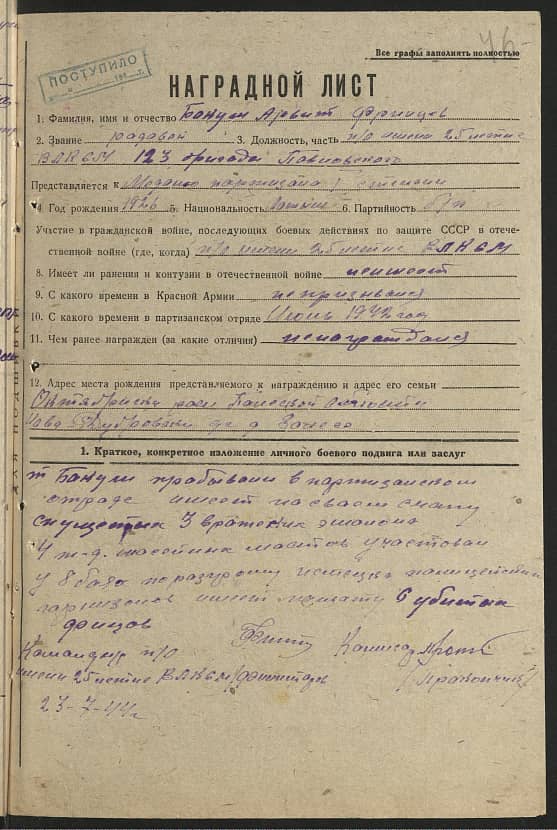 46
Все графы заполнять полностью
ПОСТУПИЛО
НАГРАДНОЙ ЛИСТ
1. Фамилия, имя и отчество Банули Арвит Фрицов
2. Звание радавой 3. Должность, часть п/о имени 25 летие
ВЛКСМ 123 бригады Павловского
Представляется к Медалию партизана I степени
4. Год рождения 1926 5. Национальность Латыш 6. Партийность б/п
Участие в гражданской войне, последующих боевых действиях по защите СССР в отече-
ственной войне (где, когда) п/о имени 25 летие ВЛКСМ
8. Имеет ли ранения и контузии в отечественной войне неимеет
9. С какого времени в Красной Армии непризывался
10. С какого времени в партизанском отряде Июнь 1942 год
11. Чем ранее награжден (за какие отличия) ненаграждался
12. Адрес места рождения представляемого к награждению и адрес его семьи
раен области
Нова д.
ДЛЯ ПОДШИВК
1. Краткое, конкретное изложение личного боевого подвига или заслуг
т Банули прабывани в партизанском
отраде имеет насваем счату
спущетых 3 вражеских эшалона
4 ж-д. мастов участвовал
у 8 баях по разгрому немецка полицейских
гарнизонов имеет 6 убитых
фрицов
Командир п/о Комисар
имени 25 летие ВЛКСМ
23-7-44 г